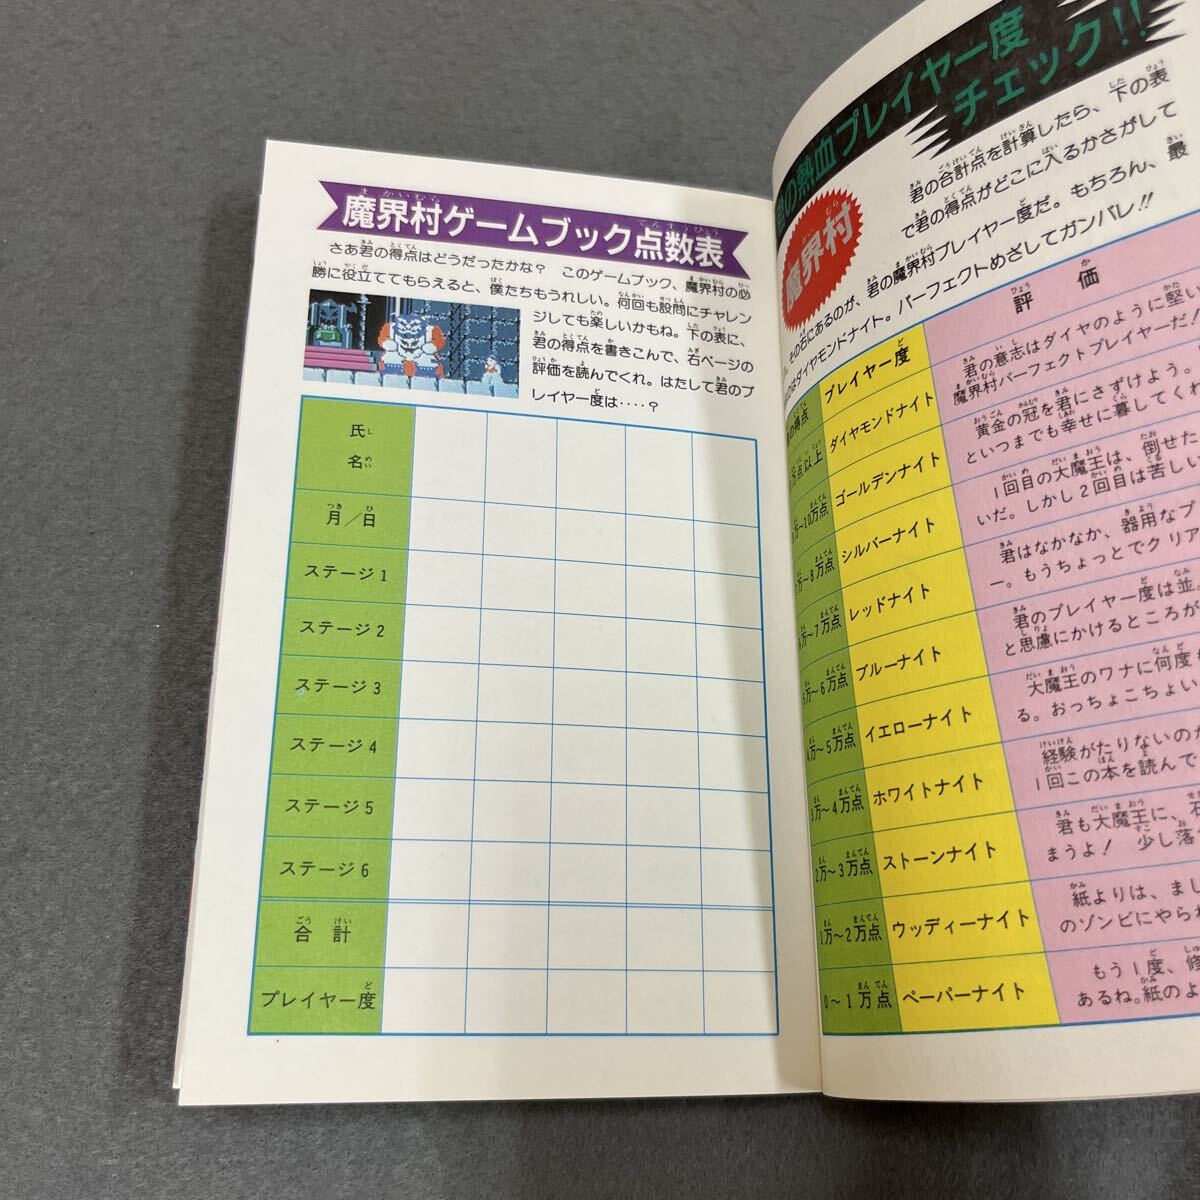 魔界村ゲームブック点数表
さあ君の得点はどうだったかな？　このゲームブック、魔界村の必
勝に役立ててもらえると、僕たちもうれしい。何回も設問にチャレン
ジしても楽しいかもね。下の表に、
君の得点を書きこんで、右ページの
評価を読んでくれ。はたして君のプ
レイヤー度は‥‥？
氏名
月／日
ステージ1
ステージ2
ステージ3
ステージ4
ステージ5
ステージ6
合計
プレイヤー度
の熱血プレイヤー度
チェック!!
魔界村
君の合計点を計算したら、下の表
で君の得点がどこに入るかさがして
その右にあるのが、君の魔界村プレイヤー度だ。もちろん、最
はダイヤモンドナイト。パーフェクトめざしてガンバレ!!
の得点 プレイヤー度 評価
万点以上 ダイヤモンドナイト
君の意志はダイヤのように堅い
魔界村パーフェクトプレイヤーだ！
～10万点 ゴールデンナイト
黄金の冠を君にさずけよう。
といつまでも幸せに暮してくれ
～8万点 シルバーナイト
1回目の大魔王は、倒せた
いだ。しかし2回目は苦しい
～7万点 レッドナイト
君はなかなか、器用なプ
ー。もうちょっとでクリア
5万～6万点 ブルーナイト
君のプレイヤー度は並。
と思慮にかけるところが
4万～5万点 イエローナイト
大魔王のワナに何度も
る。おっちょこちょい
3万～4万点 ホワイトナイト
経験がたりないのか
1回この本を読んで
2万～3万点 ストーンナイト
君も大魔王に、石
まうよ！　少し落
1万～2万点 ウッディーナイト
紙よりは、まし
のゾンビにやられ
0～1万点 ペーパーナイト
もう1度、修
あるね。紙のよ